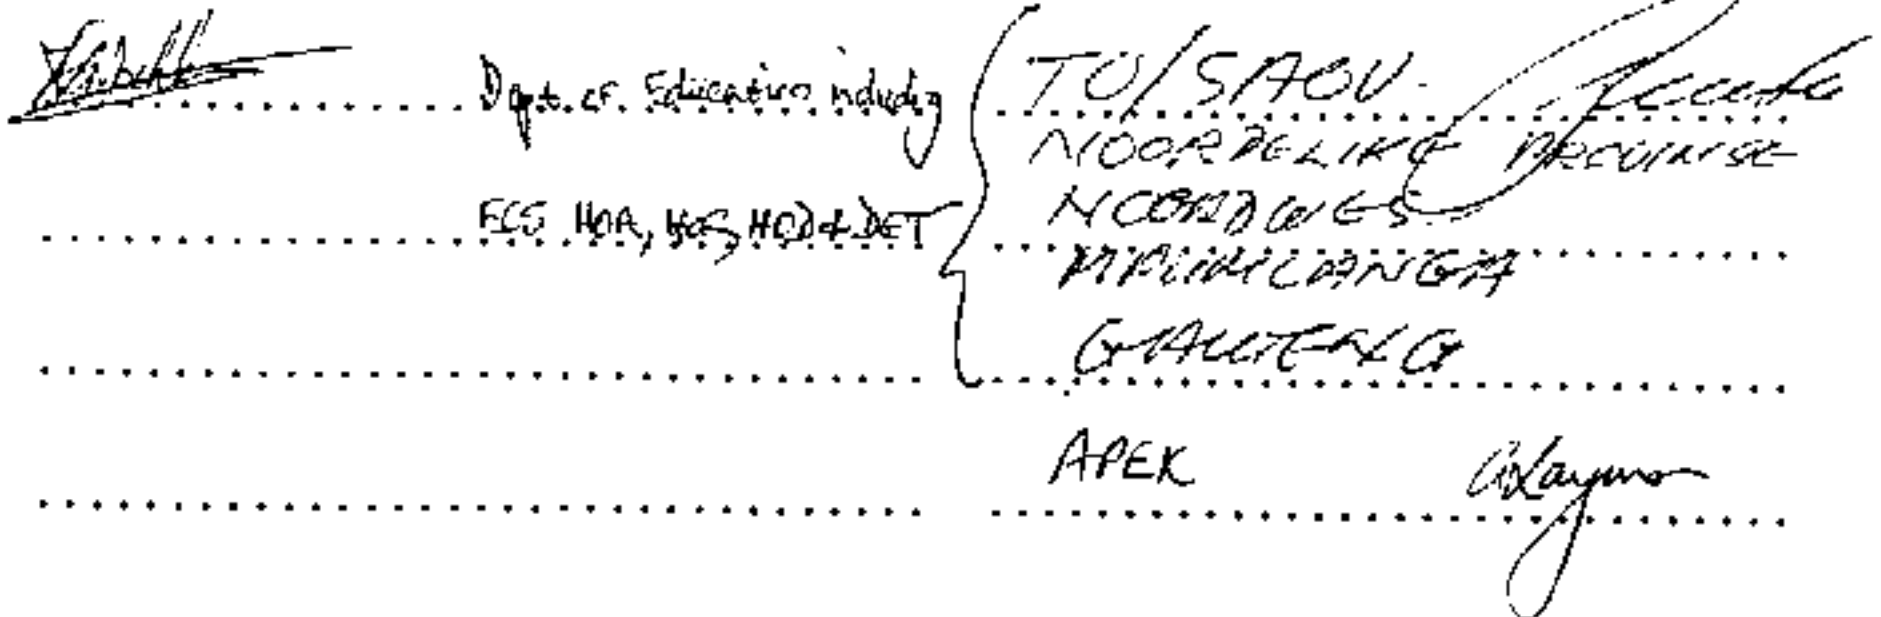 Dept. of Education including
ECS HOA, HOR, HOD & DET
TO/SAOU
NOORDELIKE PROVINSE
NOORDWES
MPUMALANGA
GAUTENG
APEK